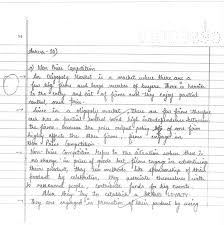 Answer-30)
a) Non Price Competition
→ An Oligopoly Market is a market where there are a
few big firms and large number of buyers. There is barrier
to the entry and exit of firms and they enjoy partial
control over price.
→ Since in a oligopoly market, there are few firms
has a partial control and high interdependence between
the firms because the price output policy of one firm
highly affects the firms engaged in
Non Price Competition
→ Non-Price Competition Refers to the situation where there is
no change in price of goods but firms engage in advertising
their product, they use methods like sponsorship of their
product by celebrities, they associate themselves with
renowned people, contribute funds for big events.
Also they try to establish a BRAND LOYALTY
→ They are engaged in promotion of their product by using